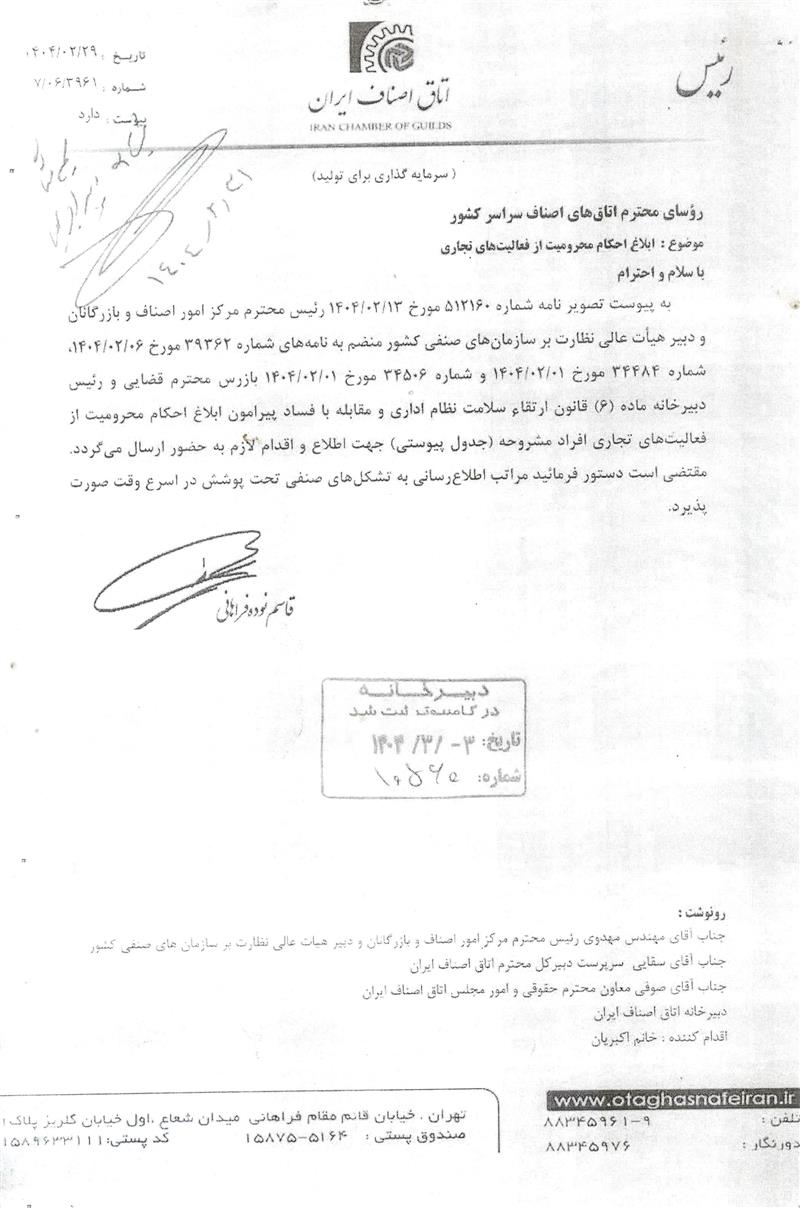 رئیس
اتاق اصناف ایران
IRAN CHAMBER OF GUILDS
تاریخ : ۱۴۰۴/۰۲/۲۹
شماره : ۷/۰۶/۳۹۶۱
پیوست : دارد
۱۴۰۴/۲/۳۱
( سرمایه گذاری برای تولید)
رؤسای محترم اتاق‌های اصناف سراسر کشور
موضوع : ابلاغ احکام محرومیت از فعالیت‌های تجاری
با سلام و احترام
به پیوست تصویر نامه شماره ۵۱۲۱۶۰ مورخ ۱۴۰۴/۰۲/۱۳ رئیس محترم مرکز امور اصناف و بازرگانان
و دبیر هیأت عالی نظارت بر سازمان‌های صنفی کشور منضم به نامه‌های شماره ۳۹۳۶۲ مورخ ۱۴۰۴/۰۲/۰۶،
شماره ۳۴۴۸۴ مورخ ۱۴۰۴/۰۲/۰۱ و شماره ۳۴۵۰۶ مورخ ۱۴۰۴/۰۲/۰۱ بازرس محترم قضایی و رئیس
دبیرخانه ماده (۶) قانون ارتقاء سلامت نظام اداری و مقابله با فساد پیرامون ابلاغ احکام محرومیت از
فعالیت‌های تجاری افراد مشروحه (جدول پیوستی) جهت اطلاع و اقدام لازم به حضور ارسال می‌گردد.
مقتضی است دستور فرمائید مراتب اطلاع‌رسانی به تشکل‌های صنفی تحت پوشش در اسرع وقت صورت
پذیرد.
قاسم نوده فراهانی
دبیرخانه
در کامپیوتر ثبت شد
تاریخ: ۳ -/ ۳/ ۱۴۰۴
شماره:
رونوشت :
جناب آقای مهندس مهدوی رئیس محترم مرکز امور اصناف و بازرگانان و دبیر هیات عالی نظارت بر سازمان های صنفی کشور
جناب آقای سقایی سرپرست دبیرکل محترم اتاق اصناف ایران
جناب آقای صوفی معاون محترم حقوقی و امور مجلس اتاق اصناف ایران
دبیرخانه اتاق اصناف ایران
اقدام کننده : خانم اکبریان
www.otaghasnafeiran.ir
تلفن : ۸۸۳۴۵۹۶۱-۹
دورنگار : ۸۸۳۴۵۹۷۶
تهران . خیابان قائم مقام فراهانی میدان شعاع .اول خیابان گلریز پلاک ۱
صندوق پستی : ۱۵۸۷۵-۵۱۶۴ کد پستی: ۱۵۸۹۶۳۳۱۱۱